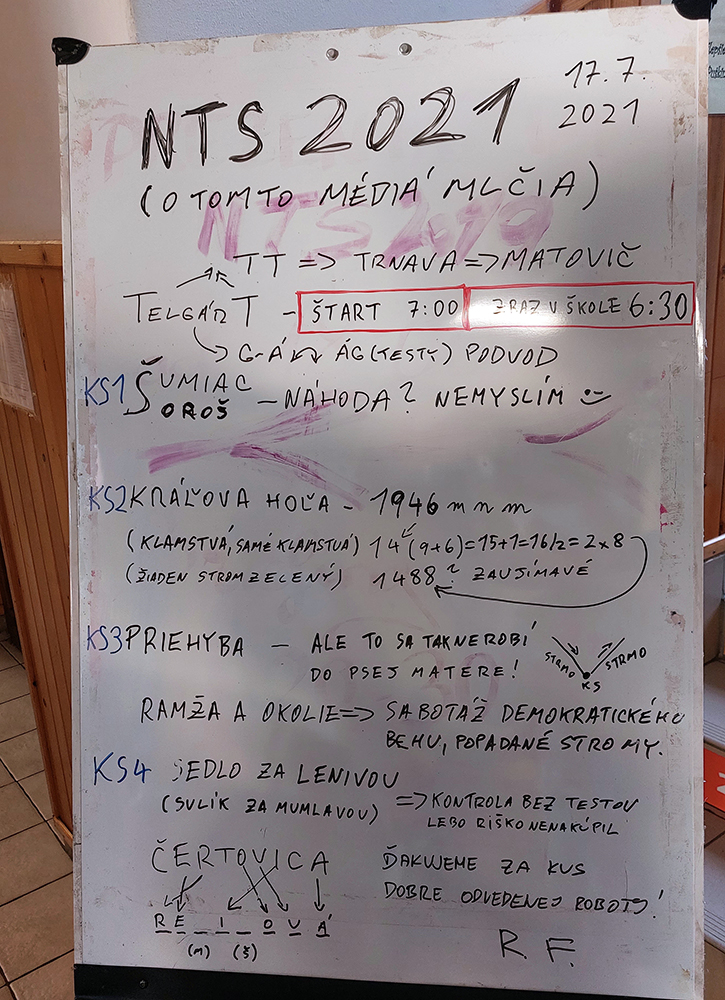 17.7.
2021
NTS 2021
(O TOMTO MÉDIÁ MLČIA)
TT => TRNAVA => MATOVIČ
TELGÁRT - ŠTART 7:00 ZRAZ V ŠKOLE 6:30
G-Á ÁG (TESTY) PODVOD
KS1 ŠUMIAC
OROŠ - NÁHODA? NEMYSLÍM
KS2 KRÁĽOVA HOĽA - 1946 m n m
(KLAMSTVÁ, SAMÉ KLAMSTVÁ) 14 (9+6)=15+1=16/2=2x8
(ŽIADEN STROM ZELENÝ) 1488? ZAUJÍMAVÉ
KS3 PRIEHYBA - ALE TO SA TAK NEROBÍ
DO PSEJ MATERE!
STRMO STRMO
KS
RAMŽA A OKOLIE => SABOTÁŽ DEMOKRATICKÉHO
BEHU, POPADANÉ STROMY.
KS4 SEDLO ZA LENIVOU
(SULÍK ZA MUMLAVOU) => KONTROLA BEZ TESTOV
LEBO RIŠKO NENAKÚPIL
ČERTOVICA
ĎAKUJEME ZA KUS
DOBRE ODVEDENEJ ROBOTY!
R E _ I _ O V Á
(M) (Š)
R. F.